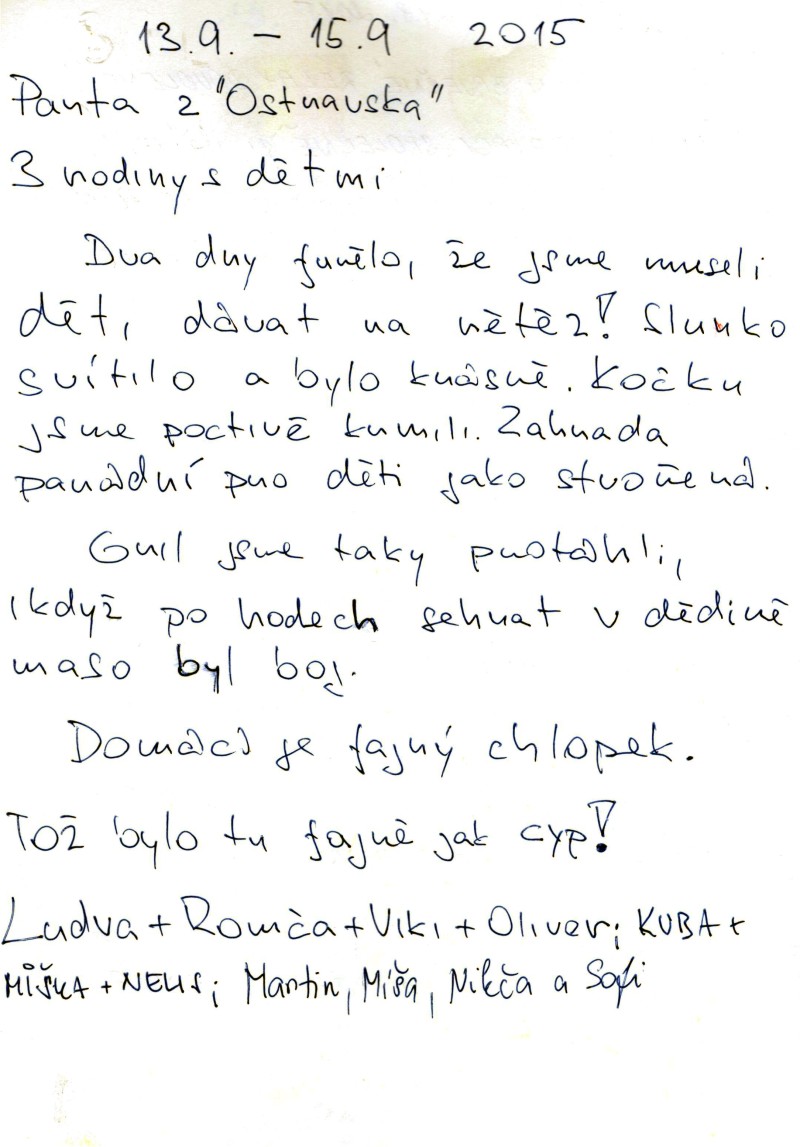 13.9. – 15.9 2015
Parta z "Ostravska"
3 rodiny s dětmi
Dva dny funělo, že jsme museli
děti dávat na řětěz! Slunko
svítilo a bylo krásně. Kočku
jsme poctivě krmili. Zahrada
parádní pro děti jako stvořená.
Gril jsme taky protáhli,
ikdyž po hodech sehnat v dědině
maso byl boj.
Domácí je fajný chlopek.
Tož bylo tu fajně jak cyp!
Ludva + Romča + Viki + Oliver; KUBA +
MIŠKA + NELIS; Martin, Míša, Nikča a Sofi